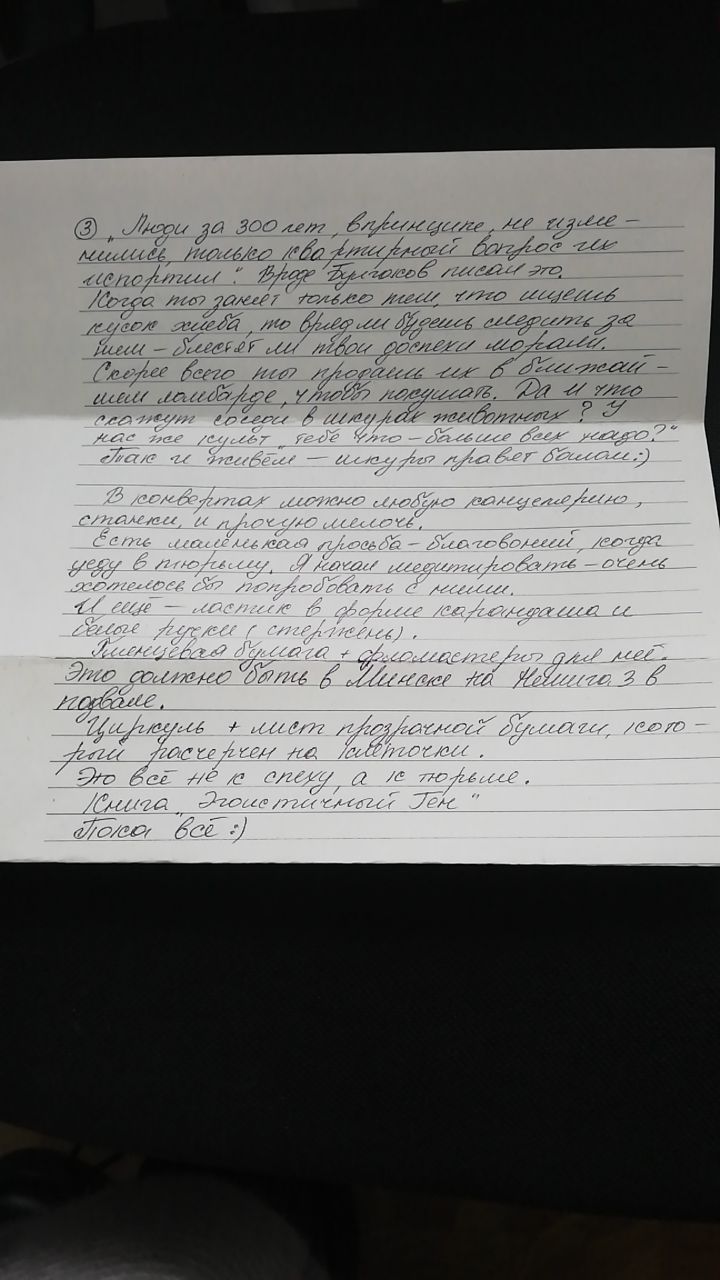 ③ „Люди за 300 лет, впринципе, не изме-
нились, только квартирный вопрос их
испортил". Вроде Булгаков писал это.
Когда ты занят только тем, что ищешь
кусок хлеба, то врядли будешь следить за
тем – блестят ли твои доспехи морали.
Скорее всего ты продашь их в ближай-
шем ломбарде, чтобы покушать. Да и что
скажут соседи в шкурах животных? У
нас же культ „тебе что-больше всех надо?"
Так и живём – шкуры правят балом :)
В конвертах можно любую канцелярию,
станки, и прочую мелочь.
Есть маленькая просьба – благовоний, когда
уеду в тюрьму. Я начал медитировать – очень
хотелось бы попробовать с ними.
И ещё – ластик в форме карандаша и
белые ручки (стержень).
Глянцевая бумага + фломастеры для неё.
Это должно быть в Минске на Немига 3 в
подвале.
Циркуль + лист прозрачной бумаги, кото-
рый расчерчен на клеточки.
Это всё не к спеху, а к тюрьме.
Книга „Эгоистичный Ген"
Пока всё :)